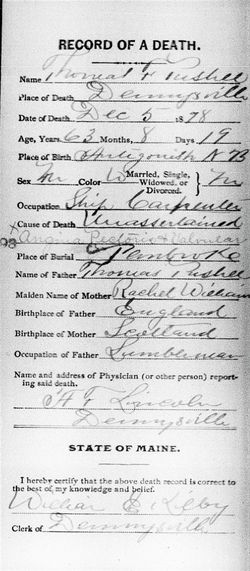 RECORD OF A DEATH.
Name Thomas T
Place of Death, Dennysville
Date of Death, Dec 5 1878
Age, Years, 63 Months, 8 Days 19
Place of Birth N B
Sex M Color W Married, Single, Widowed, or Divorced. M
Occupation Ship Carpenter
Cause of Death Unascertained
Angina Pectoris & Valvular
Place of Burial Pembroke
Name of Father Thomas
Maiden Name of Mother Rachel William
Birthplace of Father England
Birthplace of Mother Scotland
Occupation of Father Lumberman
Name and address of Physician (or other person) report-
ing said death.
A T Lincoln
Dennysville
STATE OF MAINE.
I hereby certify that the above death record is correct to
the best of my knowledge and belief.
William E Kilby
Clerk of Dennysville